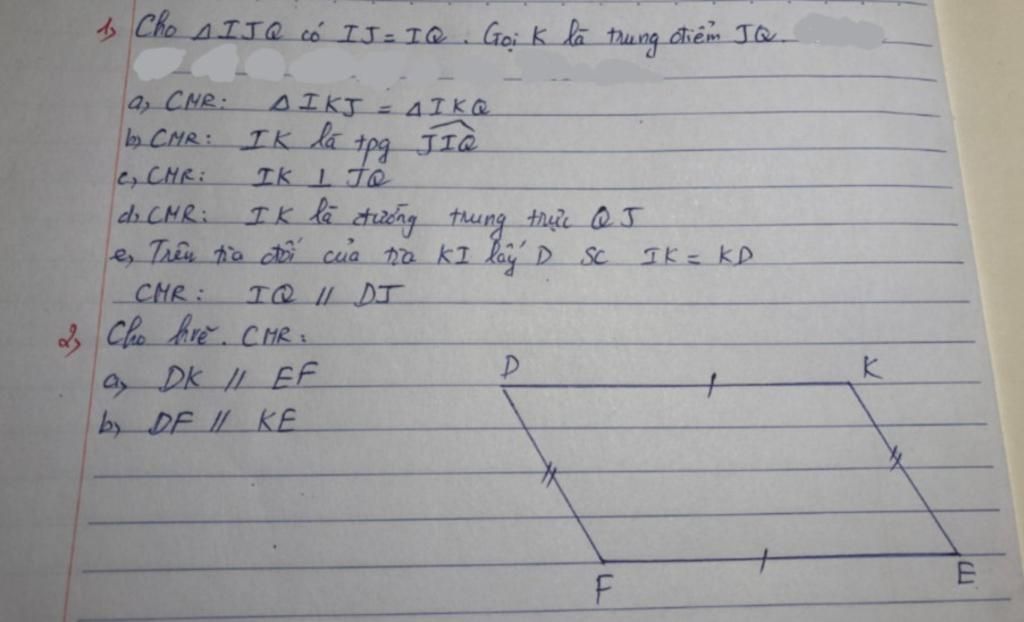 1, Cho △IJQ có IJ = IQ. Gọi K là trung điểm JQ.
a, CMR: △IKJ = △IKQ
b, CMR: IK là tpg JIQ
c, CMR: IK ⊥ JQ
d, CMR: IK là đường trung trực QJ
e, Trên tia đối của tia KI lấy D sc IK = KD
CMR: IQ // DJ
2, Cho hvẽ. CMR:
a, DK // EF
b, DF // KE
D K
F E